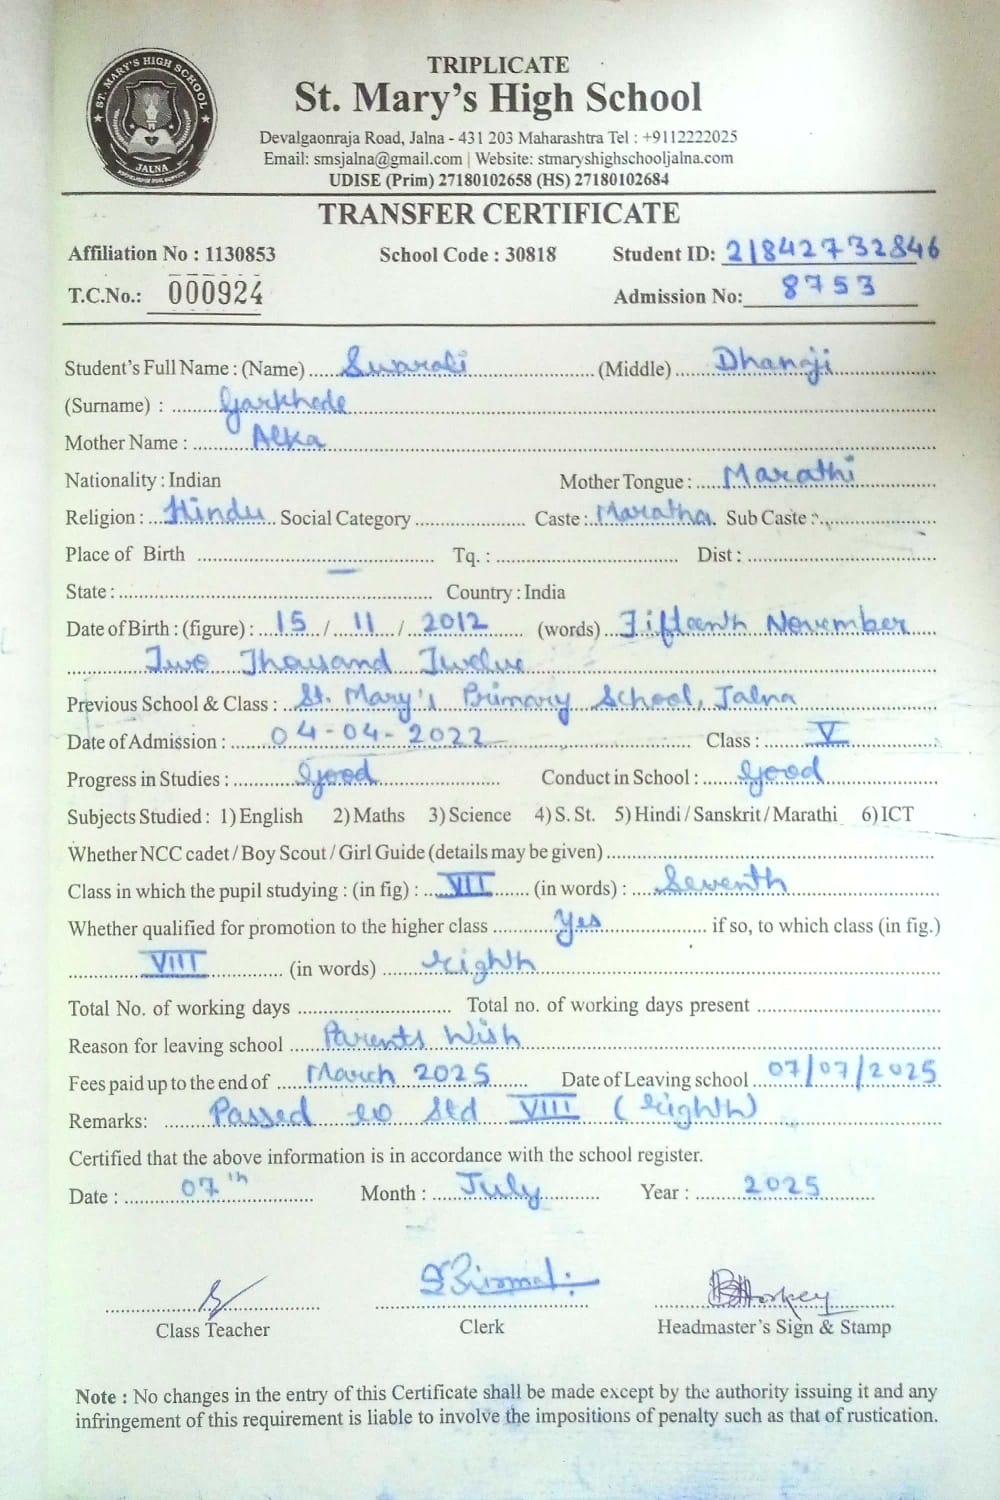 ST. MARY'S HIGH SCHOOL
JALNA
TRIPLICATE
St. Mary's High School
Devalgaonraja Road, Jalna - 431 203 Maharashtra Tel : +9112222025
Email: smsjalna@gmail.com | Website: stmaryshighschooljalna.com
UDISE (Prim) 27180102658 (HS) 27180102684
TRANSFER CERTIFICATE
Affiliation No : 1130853 School Code : 30818 Student ID: 21842732846
T.C.No.: 000924 Admission No: 8753
Student's Full Name : (Name) Swarali (Middle) Dhanaji
(Surname) : Garkhede
Mother Name : Alka
Nationality : Indian Mother Tongue : Marathi
Religion : Hindu Social Category Caste : Maratha Sub Caste :
Place of Birth Tq. : Dist :
State : Country : India
Date of Birth : (figure) : 15 / 11 / 2012 (words) Fifteenth November
Two Thousand Twelve
Previous School & Class : St. Mary's Primary School, Jalna
Date of Admission : 04-04-2022 Class : V
Progress in Studies : Good Conduct in School : Good
Subjects Studied : 1) English 2) Maths 3) Science 4) S. St. 5) Hindi / Sanskrit / Marathi 6) ICT
Whether NCC cadet / Boy Scout / Girl Guide (details may be given)
Class in which the pupil studying : (in fig) : VII (in words) : Seventh
Whether qualified for promotion to the higher class Yes if so, to which class (in fig.)
VIII (in words) Eighth
Total No. of working days Total no. of working days present
Reason for leaving school Parents Wish
Fees paid up to the end of March 2025 Date of Leaving school 07/07/2025
Remarks: Passed to Std VIII (Eighth)
Certified that the above information is in accordance with the school register.
Date : 07th Month : July Year : 2025
Class Teacher Clerk Headmaster's Sign & Stamp
Note : No changes in the entry of this Certificate shall be made except by the authority issuing it and any
infringement of this requirement is liable to involve the impositions of penalty such as that of rustication.